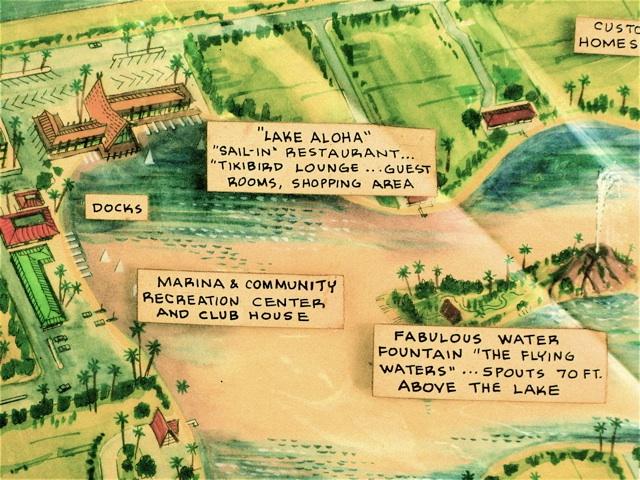 CUSTO
HOMES
"LAKE ALOHA"
"SAIL-IN" RESTAURANT...
"TIKIBIRD LOUNGE...GUEST
ROOMS, SHOPPING AREA
DOCKS
MARINA & COMMUNITY
RECREATION CENTER
AND CLUB HOUSE
FABULOUS WATER
FOUNTAIN "THE FLYING
WATERS"...SPOUTS 70 FT.
ABOVE THE LAKE